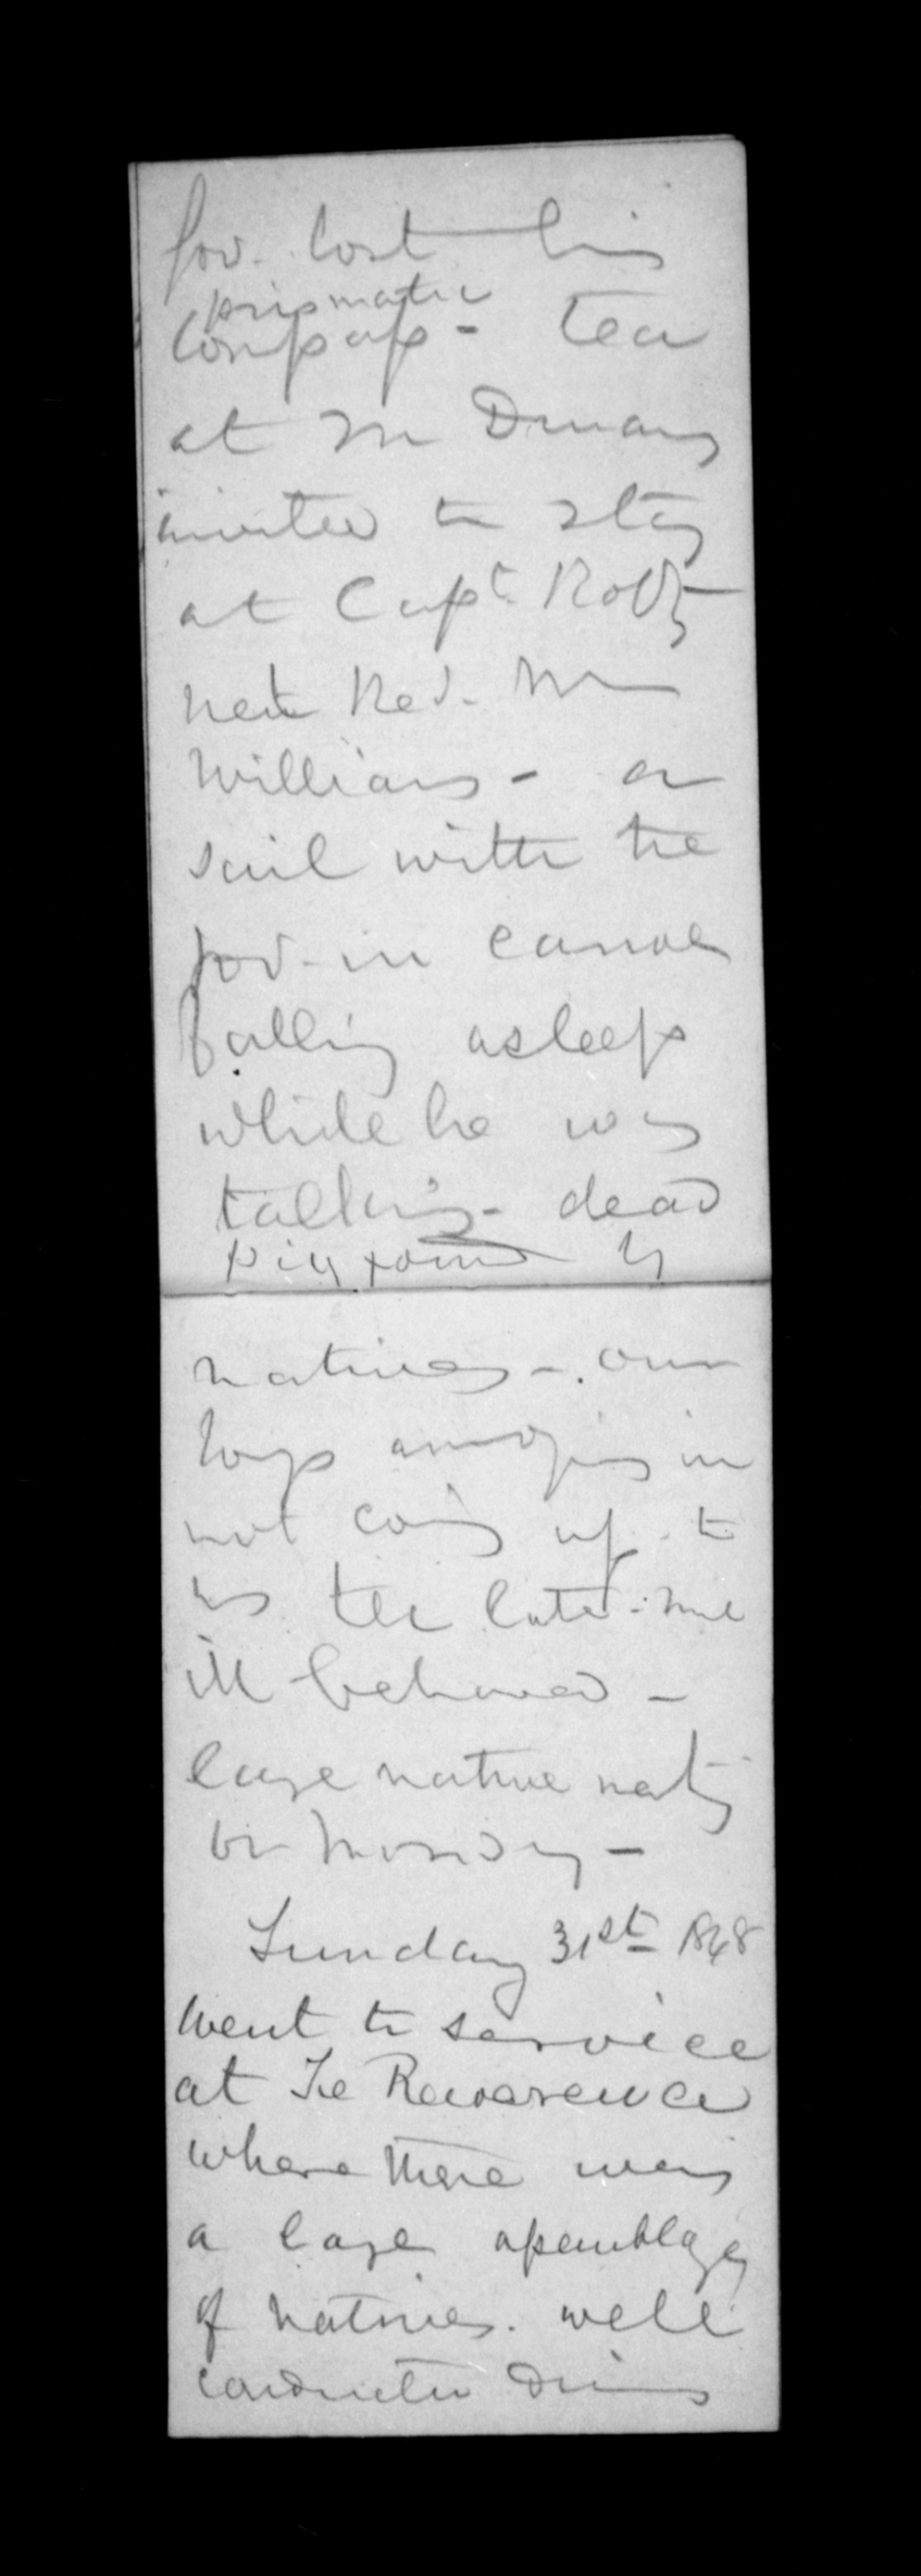 Gov. lost his
prismatic
Compass - tea
at Mr
invited to stay
at Capt.
next Rev. Mr
Williams - a
sail with the
Gov. in canoe
falling asleep
while he was
talking - dead
pig found by
natives - our
boys annoying in
not coming up to
us till late.
ill behaved -
large native meeting
on Monday -
Sunday 31st 1848
Went to service
at Te Rewarewa
where there was
a large assemblage
of natives. well
conducted